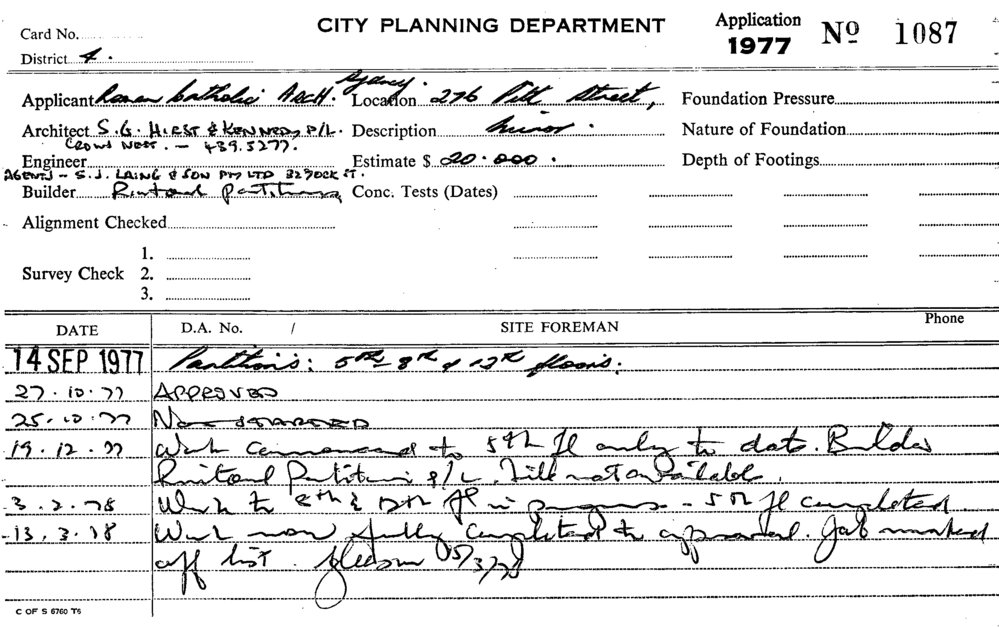 CITY PLANNING DEPARTMENT
Application
1977
Nº 1087
Card No.
District 4.
Applicant Roman Catholic ARCH. Sydney. Location 276 Pitt Street,
Foundation Pressure
Architect S.G. HIRST & KENNEDY P/L. Description Minor.
Nature of Foundation
CROWS NEST. - 439.5277.
Engineer
Estimate $ 20.000.
Depth of Footings
AGENTS - S.J. LAING & SON PTY LTD ST.
Builder Partitions
Conc. Tests (Dates)
Alignment Checked
Survey Check
1.
2.
3.
DATE D.A. No. / SITE FOREMAN Phone
14 SEP 1977 Partitions: 5th 8th & 12th floors:
27.10.77 APPROVED
25.10.77 Not STARTED
19.12.77 Work commenced to 5th fl only to date. Builder
Partitions P/L. Still not available.
3.2.78 Work to 8th & 12th fl in progress - 5th fl completed
13.3.78 Work now fully completed to approval. Job marked
off list. 15/3/78
C OF S 6760 T6